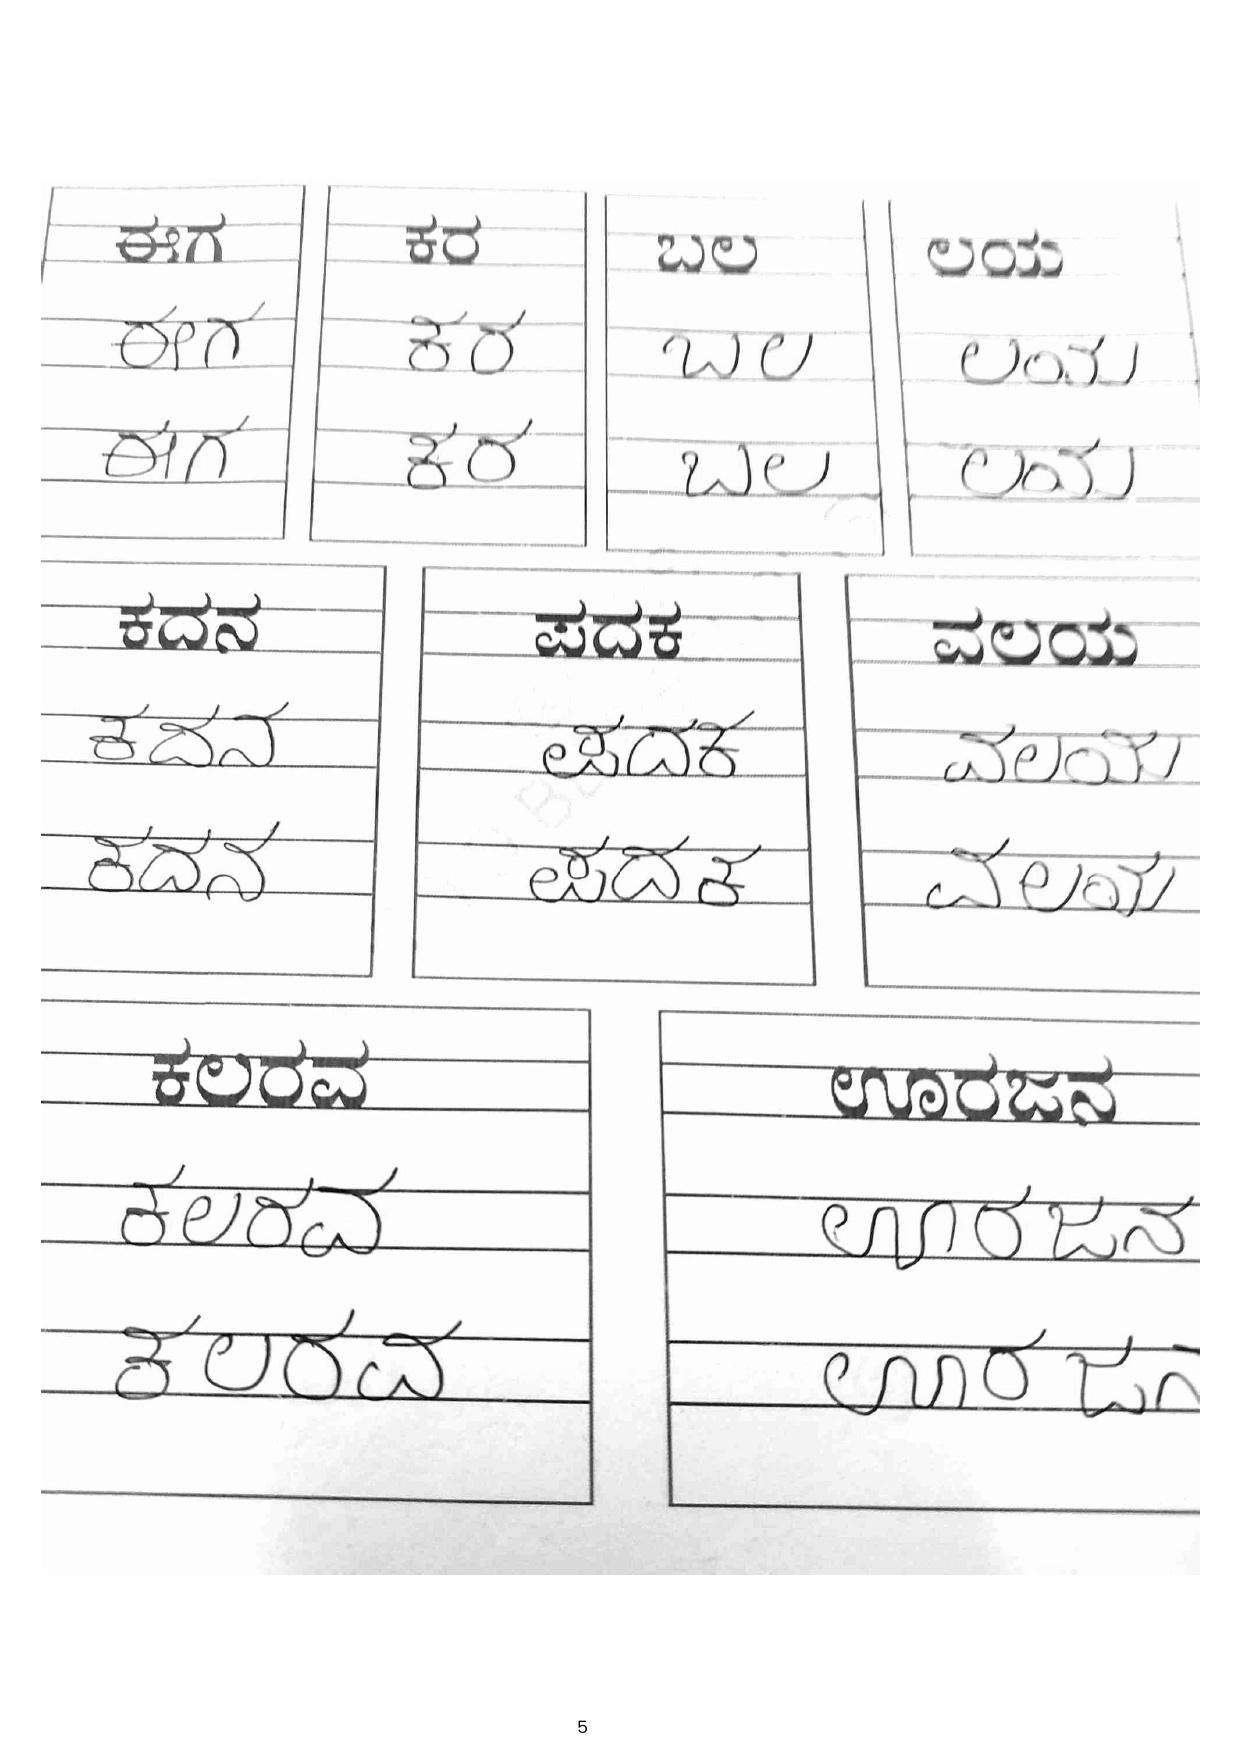 ಈಗ ಕರ ಬಲ ಲಯ
ಈಗ ಕರ ಬಲ ಲಯ
ಈಗ ಕರ ಬಲ ಲಯ
ಕದನ ಪದಕ ವಲಯ
ಕದನ ಪದಕ ವಲಯ
ಕದನ ಪದಕ ವಲಯ
ಕಲರವ ಊರಜನ
ಕಲರವ ಊರಜನ
ಕಲರವ ಊರಜನ
5